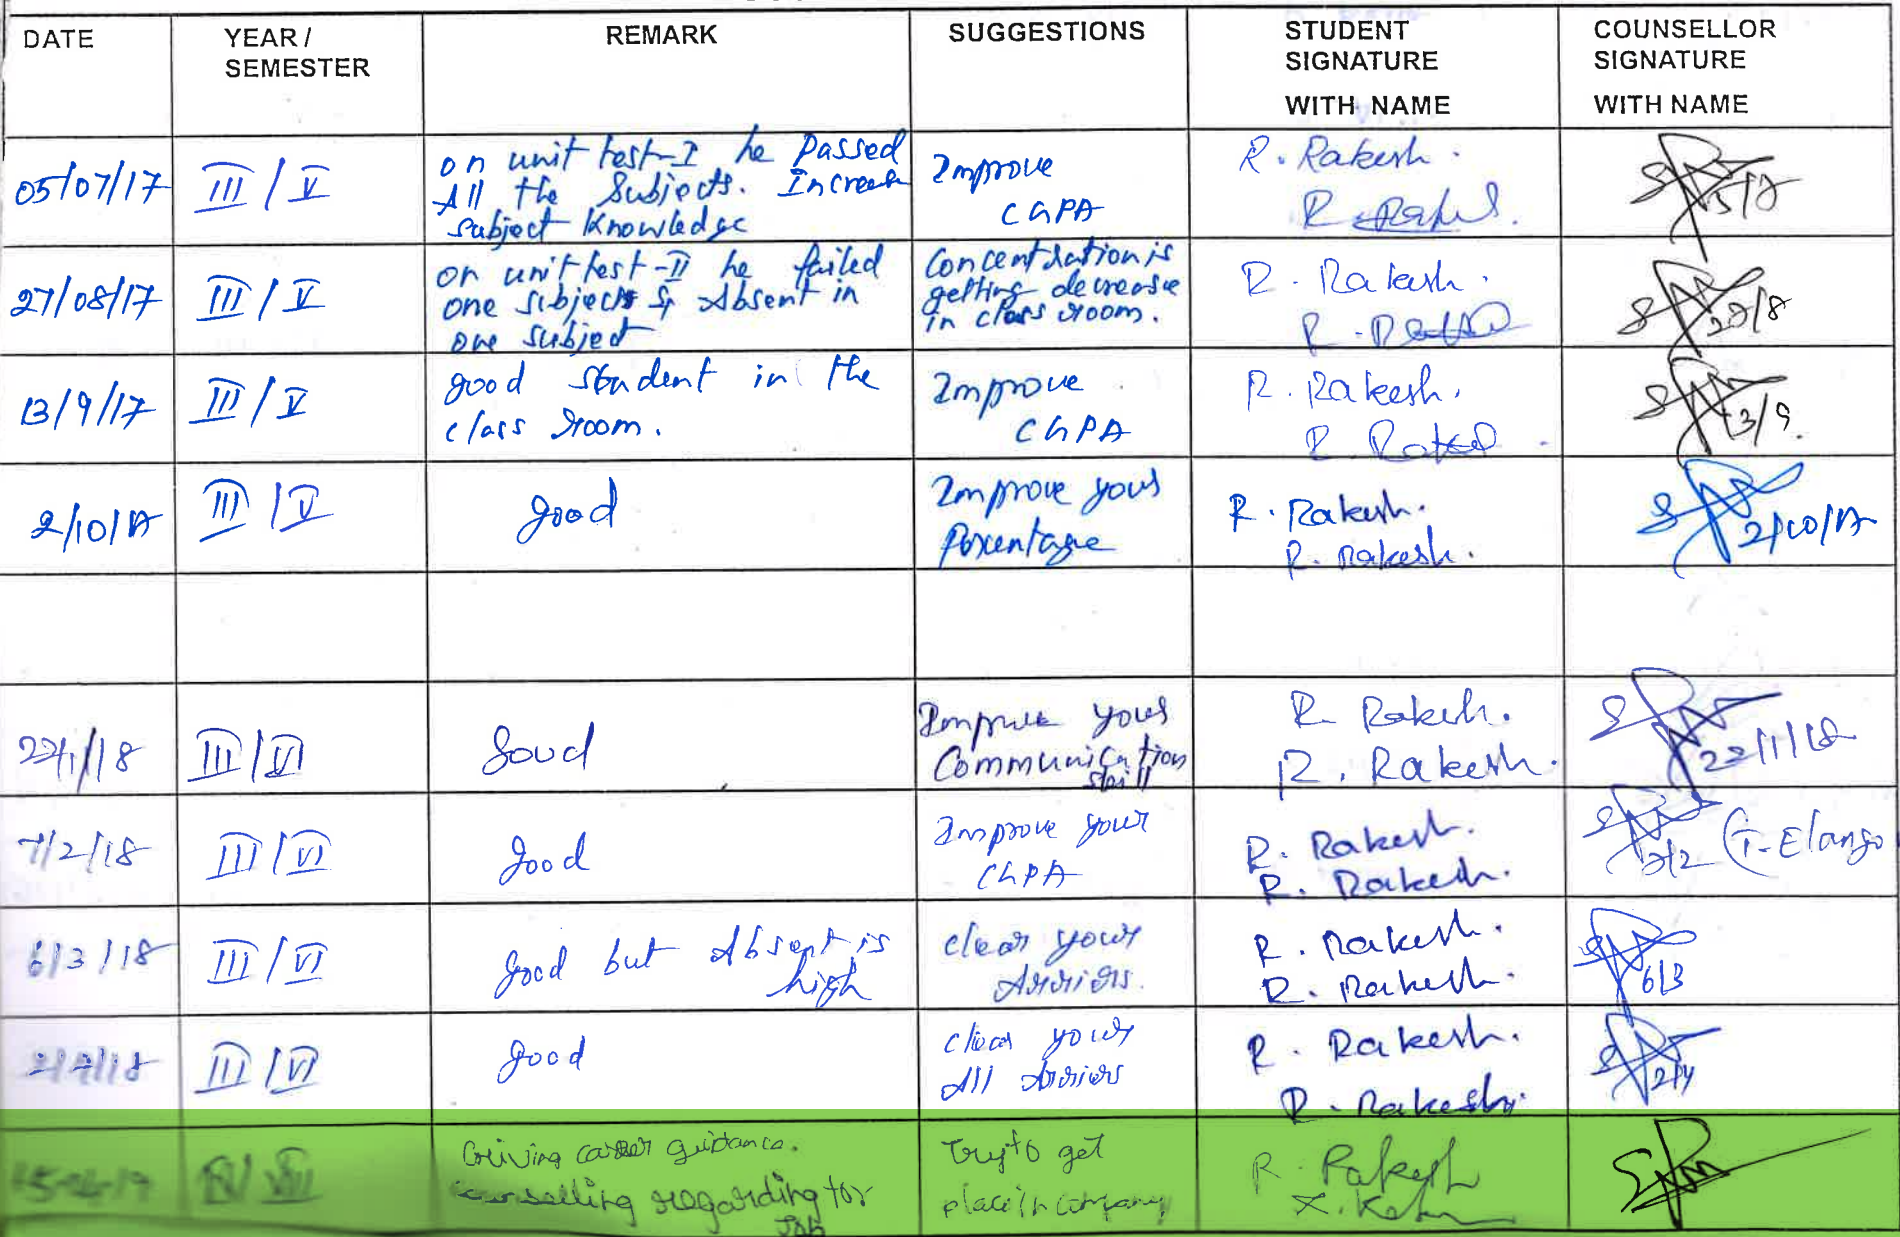 DATE
YEAR /
SEMESTER
REMARK
SUGGESTIONS
STUDENT
SIGNATURE
WITH NAME
COUNSELLOR
SIGNATURE
WITH NAME
05/07/17
III / V
on unit test-I he Passed
All the Subjects. Increase
Subject Knowledge
Improve
CGPA
R. Rakesh.
5/7
27/08/17
III / V
on unit test-II he failed
one subjects & Absent in
one subject
Concentration is
getting decrease
in class room.
R. Rakesh.
27/8
13/9/17
III / V
good student in the
class room.
Improve
CGPA
R. Rakesh.
13/9.
2/10/17
III / V
good
Improve your
Percentage
R. Rakesh.
R. Rakesh.
2/10/17
22/1/18
III / VI
Good
Improve your
Communication
skill
R. Rakesh.
R. Rakesh.
22/1/18
7/2/18
III / VI
good
Improve your
CGPA
R. Rakesh.
R. Rakesh.
7/2 (T. Elango
6/3/18
III / VI
good but Absent is
high
clear your
Arriers.
R. Rakesh.
R. Rakesh.
6/3
2/4/18
III / VI
good
clear your
All Arriers
R. Rakesh.
R. Rakesh.
2/4
Giving career guidance.
counselling regarding for
Job
Try to get
place in company
R. Rakesh